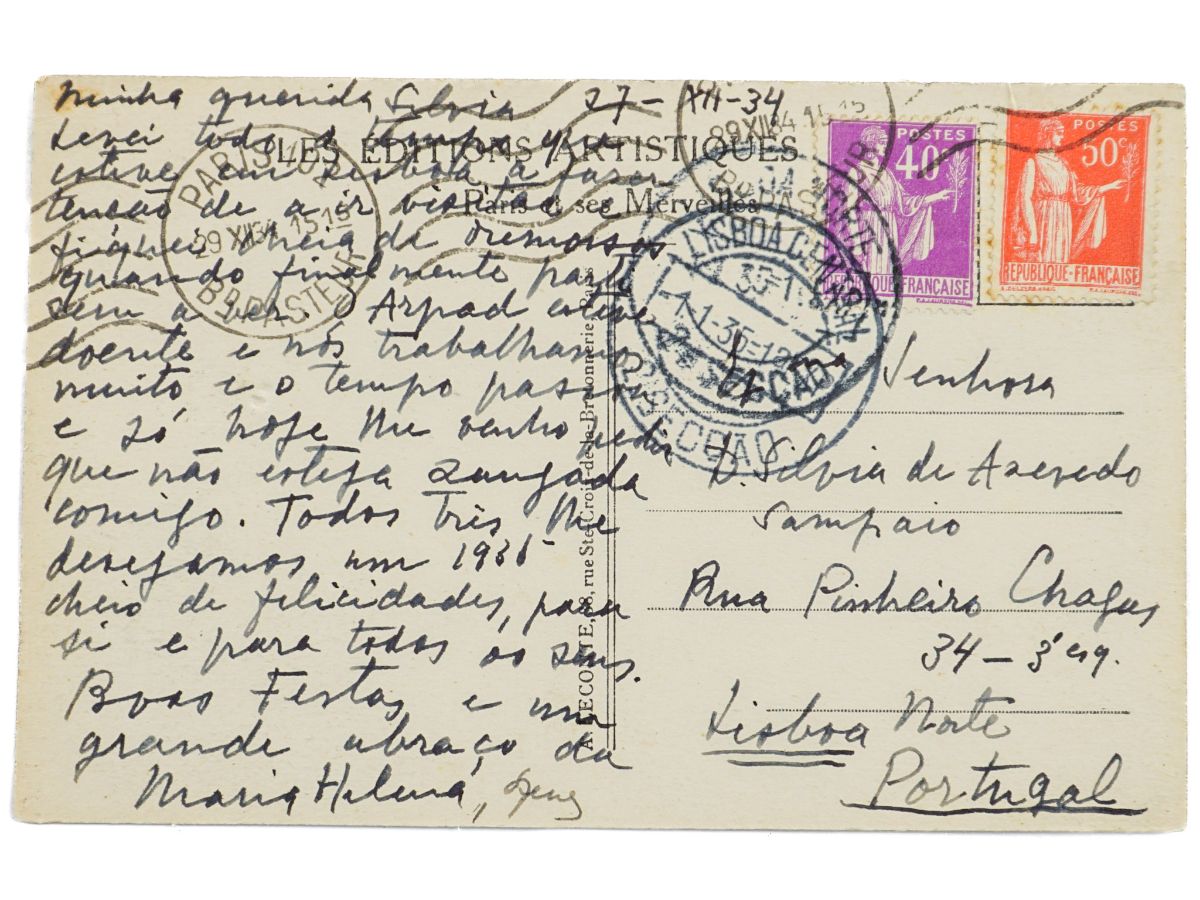 Minha querida Silvia 27-XII-34
Levei todo o tempo que
estive em Lisboa a fazer
tenção de a ir visitar
fiquei cheia de remorsos
quando finalmente parti
sem a ver. O Arpad esteve
doente e nós trabalhamos
muito e o tempo passou
e só hoje lhe venho pedir
que não esteja zangada
comigo. Todos três lhe
desejamos um 1935
cheio de felicidades, para
si e para todos os seus.
Boas Festas e um
grande abraço da
Maria Helena,
LES ÉDITIONS ARTISTIQUES
Paris et ses Merveilles
A. LECONTE, 38, rue Ste-Croix-de-la-Bretonnerie
PARIS
29 XII 34 15-15
Bd PASTEUR
29 XII 34 15-15
LISBOA CENTRAL
1-35-
2ª SECÇÃO
POSTES
40c
RÉPUBLIQUE-FRANÇAISE
POSTES
50c
RÉPUBLIQUE-FRANÇAISE
Senhora
D. Silvia de Azevedo
Sampaio
Rua Pinheiro Chagas
34 - 3º esq.
Lisboa Norte
Portugal